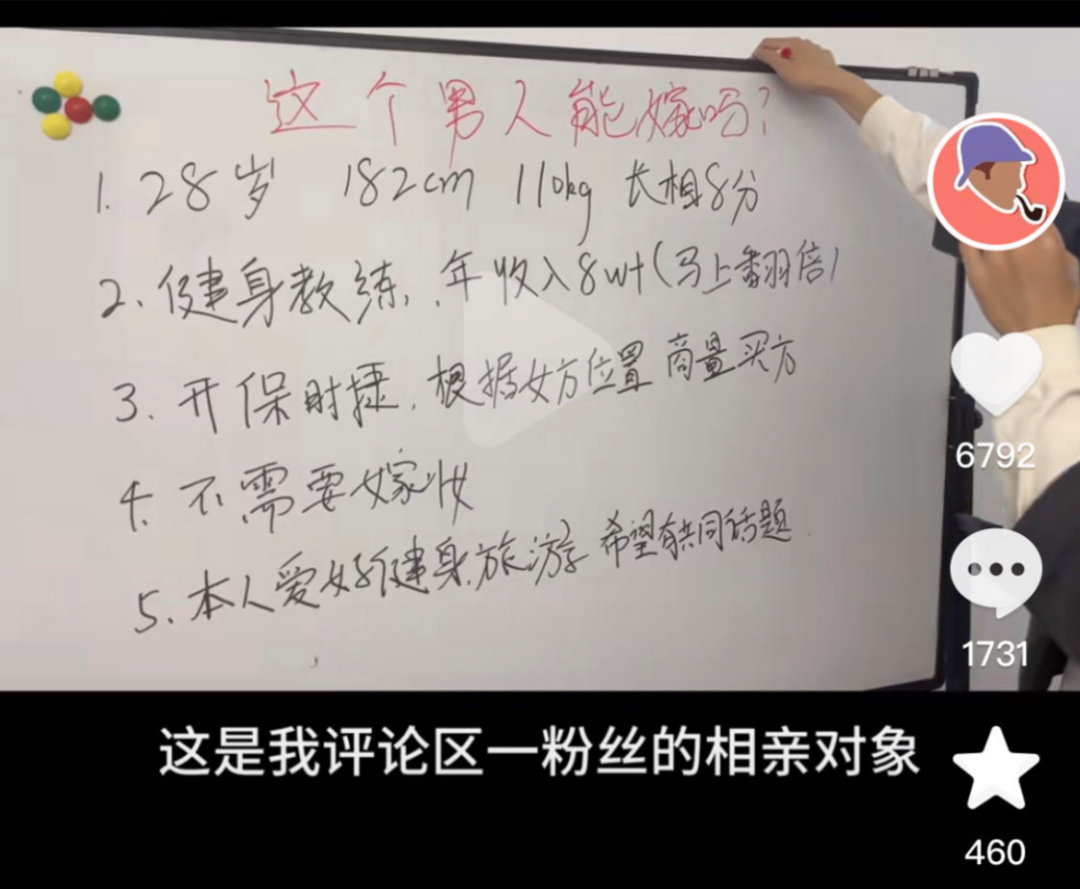 这个男人能嫁吗?
1. 28岁 182cm 110kg 长相8分
2. 健身教练, 年收入8w+(马上翻倍)
3. 开保时捷. 根据女方位置 商量买方
4. 不需要嫁妆
5. 本人爱好健身.旅游 希望有共同话题
6792
1731
这是我评论区一粉丝的相亲对象
460